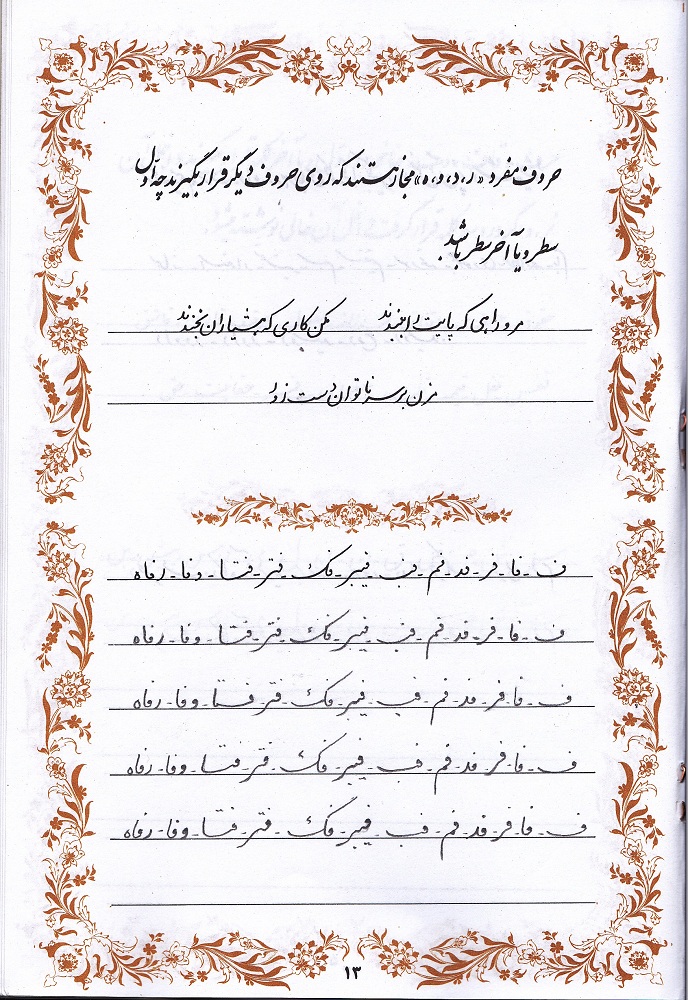 حروف مفرد «ر، د، و، ه» مجاز هستند که روی حروف دیگر قرار بگیرند چه اول
سطر و یا آخر سطر باشد.
مرو راهی که پایت را ببندند مکن کاری که هشیاران بخندند
مزن بر سر ناتوان دست زور
ف - فا - فر - فد - فم - فب - فیبر - فک - فتر - فتا - وفا - رفاه
ف - فا - فر - فد - فم - فب - فیبر - فک - فتر - فتا - وفا - رفاه
ف - فا - فر - فد - فم - فب - فیبر - فک - فتر - فتا - وفا - رفاه
ف - فا - فر - فد - فم - فب - فیبر - فک - فتر - فتا - وفا - رفاه
ف - فا - فر - فد - فم - فب - فیبر - فک - فتر - فتا - وفا - رفاه
۱۳